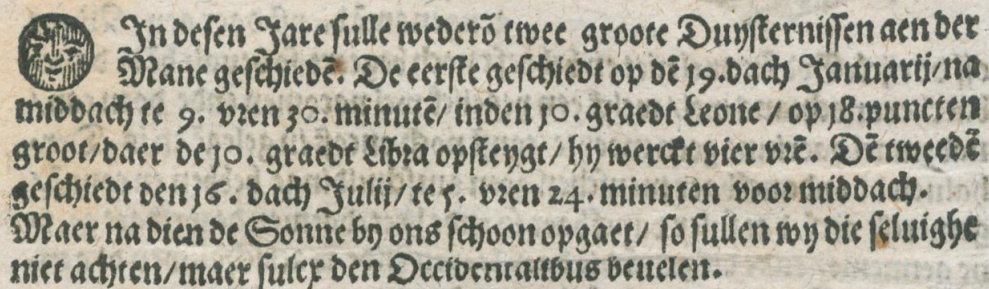 In desen Jare sulle wederõ twee groote Duysternissen aen der
Mane geschiedẽ. De eerste geschiedt op dẽ 19. dach Januarij/na
middach te 9. vren 30. minutẽ/ inden 10. graedt Leone / op 18. puncten
groot/daer de 10. graedt Libra opsteygt/ hy werckt vier vrẽ. Dẽ tweedẽ
geschiedt den 16. dach Julij/ te 5. vren 24. minuten voor middach.
Maer na dien de Sonne by ons schoon opgaet/ so sullen wy die seluighe
niet achten/maer sulcx den Occidentalibus beuelen.